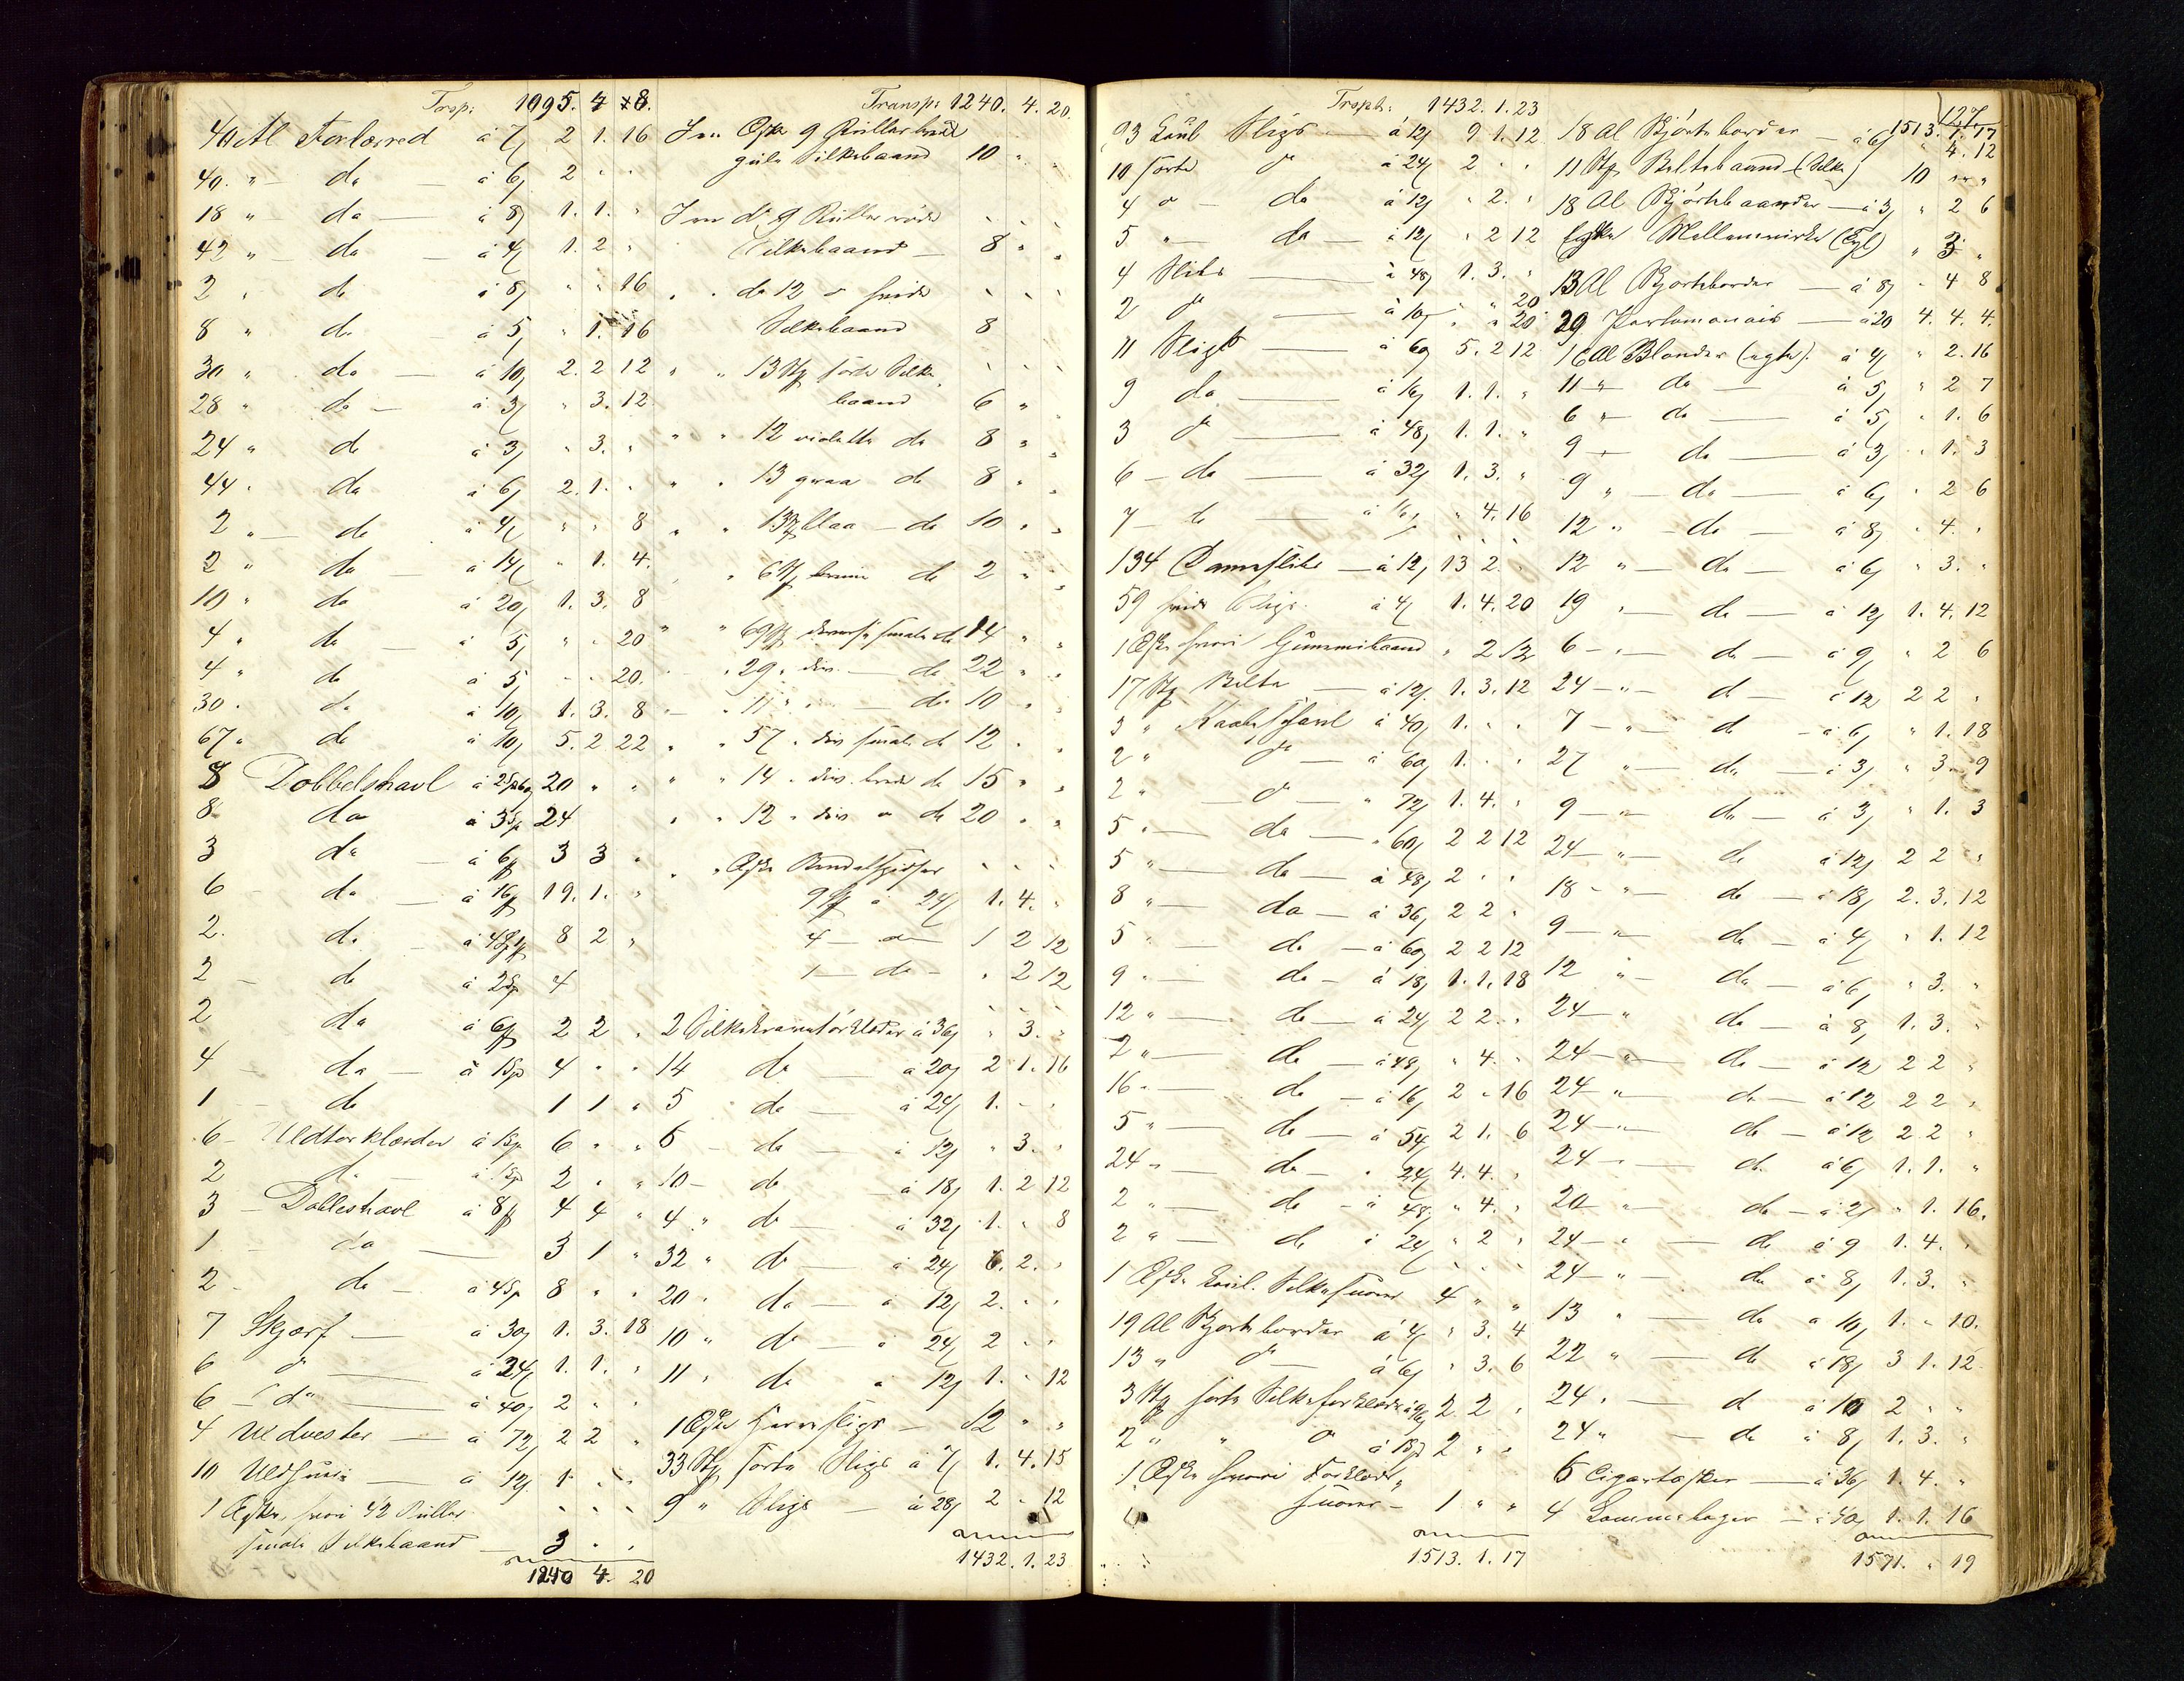 Trsp: 1095. 4 8.
40 Al Forlærred à 7/ 2 1. 16
40. " — do à 6/ 2 " "
18 " — do — à 8/ 1. 1. "
42 " — do — à 4/ 1. 2 "
2 " do à 8/ " " 16
8 " do à 5/ " 1. 16
30 " do — à 10/ 2. 2 12
28 " do — à 3/ " 3. 12
24 " do à 3/ " 3. "
44 " do à 6/ 2. 1. "
2 " — do à 4/ " " 8
2 " do — à 14/ " 1. 4.
10 " do à 20/ 1. 3. 8
4 " do — à 5/ " " 20
4 " do à 5/ " " 20.
30 " do à 10/ 1. 3. 8
67 " do à 10/ 5. 2 22
8 Dobbelshavl 20 " "
8 do à 3 Sp 24
3 do — 3 3 "
6 — do — 19. 1. "
2. do 8 2 "
2 — do à 2 Sp 4
2 do 2 2 "
4 — do — à 1 Sp 4 " "
1 — do 1 1 "
6 — Uldtørklæder à 1 Sp 6 " "
2 do à 1 Sp 2 " "
3 — Dobleshavl 4 4 "
1 — do — 3 1 "
2 — do — à 4 Sp 8 " "
7 Skjærf — à 30/ 1. 3. 18
6 do — à 24/ 1. 1. "
6 — do — à 40/ 2 " "
4 Uldvester — à 72/ 2 2 "
10 — à 12/ 1 " "
1 Æske, hvori 42 Ruller
smale Silkebaand — 3 " "
1240 4. 20
Transp: 1240. 4. 20.
1 Æske 9 Ruller
gule Silkebaand 10 " "
do 9 Ruller røde
Silkebaand — 8 " "
" " do 12 do hvide
Silkebaand 8
" " 13 Stk sorte Silke
baand 6 " "
" " 12 violette do 8 " "
" " 13 graa do 8 " "
" " 13 blaa — do 10 " "
" 6 Stk brune do 2 " "
" " 69 Stk diverse smale do 14 " "
" 29 " div. — do 22 " "
" 11 " " — do 10 " "
" " 57 " div smale do 12 " "
" " 14 " div. brede do 15 " "
" " 12 " div do 20 " "
" " Æske
9 Stk à 24/ 1. 4. "
4 — do — 1 2 12
1 — do — " 2 12
2 Silketørklæder à 36/ " 3. "
14 do — à 20/ 2 1. 16
5 do — à 24/ 1. " "
6 — do — à 12/ " 3. "
10 — do — à 18/ 1. 2 12
4 " do — à 32/ 1. " 8
32 " do — à 24/ 6. 2. "
20 " do — à 12/ 2. " "
10 " do — à 24/ 2 " "
11 " do — à 12/ 1. " 12
1 Æske Herreslips — 12 " "
33 Stk sorte Slips à 7/ 1. 4. 15
9 " Slips — à 28/ 2 " 12
1432. 1. 23
Trspt: 1432. 1. 23
93 Slips — à 12/ 9 1. 12
10 sorte do à 24/ 2 " "
4 do — do à 12/ " 2. "
5 " — do — à 12/ " 2 12
4 Slips — à 48/ 1. 3. "
2 do — à 10/ " " 20
11 Slips — à 60/ 5. 2 12
9 do — à 16/ 1. 1. "
3 do — à 48/ 1. 1. "
6 — do — à 32/ 1. 3. "
7 — do — à 16/ " 4. 16
134 Dameslibs — à 12/ 13 2. "
59 hvide Slips à 4/ 1. 4. 20
1 Æske hvori Gummibaand " 2 12
17 Stk Belte — à 12/ 1. 3. 12
3 " à 40/ 1. " "
2 " do — à 60/ 1. " "
2 " do — " 72/ 1. 4. "
5 " — do — " 60/ 2 2 12
5 " — do — à 48/ 2 " "
8 " — do — à 36/ 2 2 "
5 " — do — à 60/ 2 2 12
9 " — do — à 18/ 1. 1. 18
12 " — do — à 24/ 2 2 "
2 " — do — à 48/ " 4. "
16 " — do — à 16/ 2 " 16
5 " — do — à 54/ 2 1. 6
24 " — do — " 24/ 4. 4. "
2 " — do — à 48/ " 4. "
2 " — do à 24/ " 2 "
1 Æske Silkesnorer 4 " "
19 Al Skjorteborder à 4/ " 3. 4
13 " do — à 6/ " 3. 6
3 Stk sorte Silketørklæder 2 2 "
2 " " do 2 " "
1 Æske hvori Forklæde
snorer — 1 " "
1513. 1. 17
127
1513. 1. 17
18 Al Skjorteborder — à 6/ " 4. 12
11 Stk Beltebaand (Silke) 10 " "
18 Al Skjortebaander — à 3/ " 2 6
Æske " 3 "
13 Al Skjorteborder — à 8/ " 4 8
29 Portemonais — à 20 4. 4. 4.
16 Al Blonder (ægte). à 4/ " 2. 16
11 " do — à 5/ " 2 7
6 " — do — à 5/ " 1. 6
9 — do — à 3/ " 1. 3
9 " — do — à 6/ " 2 6
12 " — do — à 8/ " 4. "
12 " — do — à 6/ " 3. "
19 " — do — à 12/ 1. 4. 12
6 — " — do — à 9/ " 2 6
24 — " — do — à 12/ 2 2 "
7 — " — do — à 6/ " 1. 18
27 " — do — à 3/ " 3 9
9 — " — do — à 3/ " 1. 3
24 — " — do à 12/ 2 2 "
18 — " — do — à 18/ 2. 3. 12
9 — " — do — à 4/ " 1. 12
12 " — do — à 6/ " 3. "
24 — " do — à 8/ 1. 3. "
24 — " — do — à 12 2 2 "
24 — " — do — à 12 2 2 "
24 — " — do — à 12 2 2 "
24 — " — do à 6/ 1. 1. "
20 — " — do — à 2/ " 1. 16.
24 — " — do à 9 1. 4. "
24 — " — do à 8/ 1. 3. "
13 " — do à 10/ 1. " 10.
22 " — do à 18/ 3 1. 12
24 " — do à 10 2 " "
24 " — do à 8/ 1. 3. "
6 Cigartasker — à 36/ 1. 4. "
4 Lommebøger — à 40/ 1. 1. 16
1571. " 19